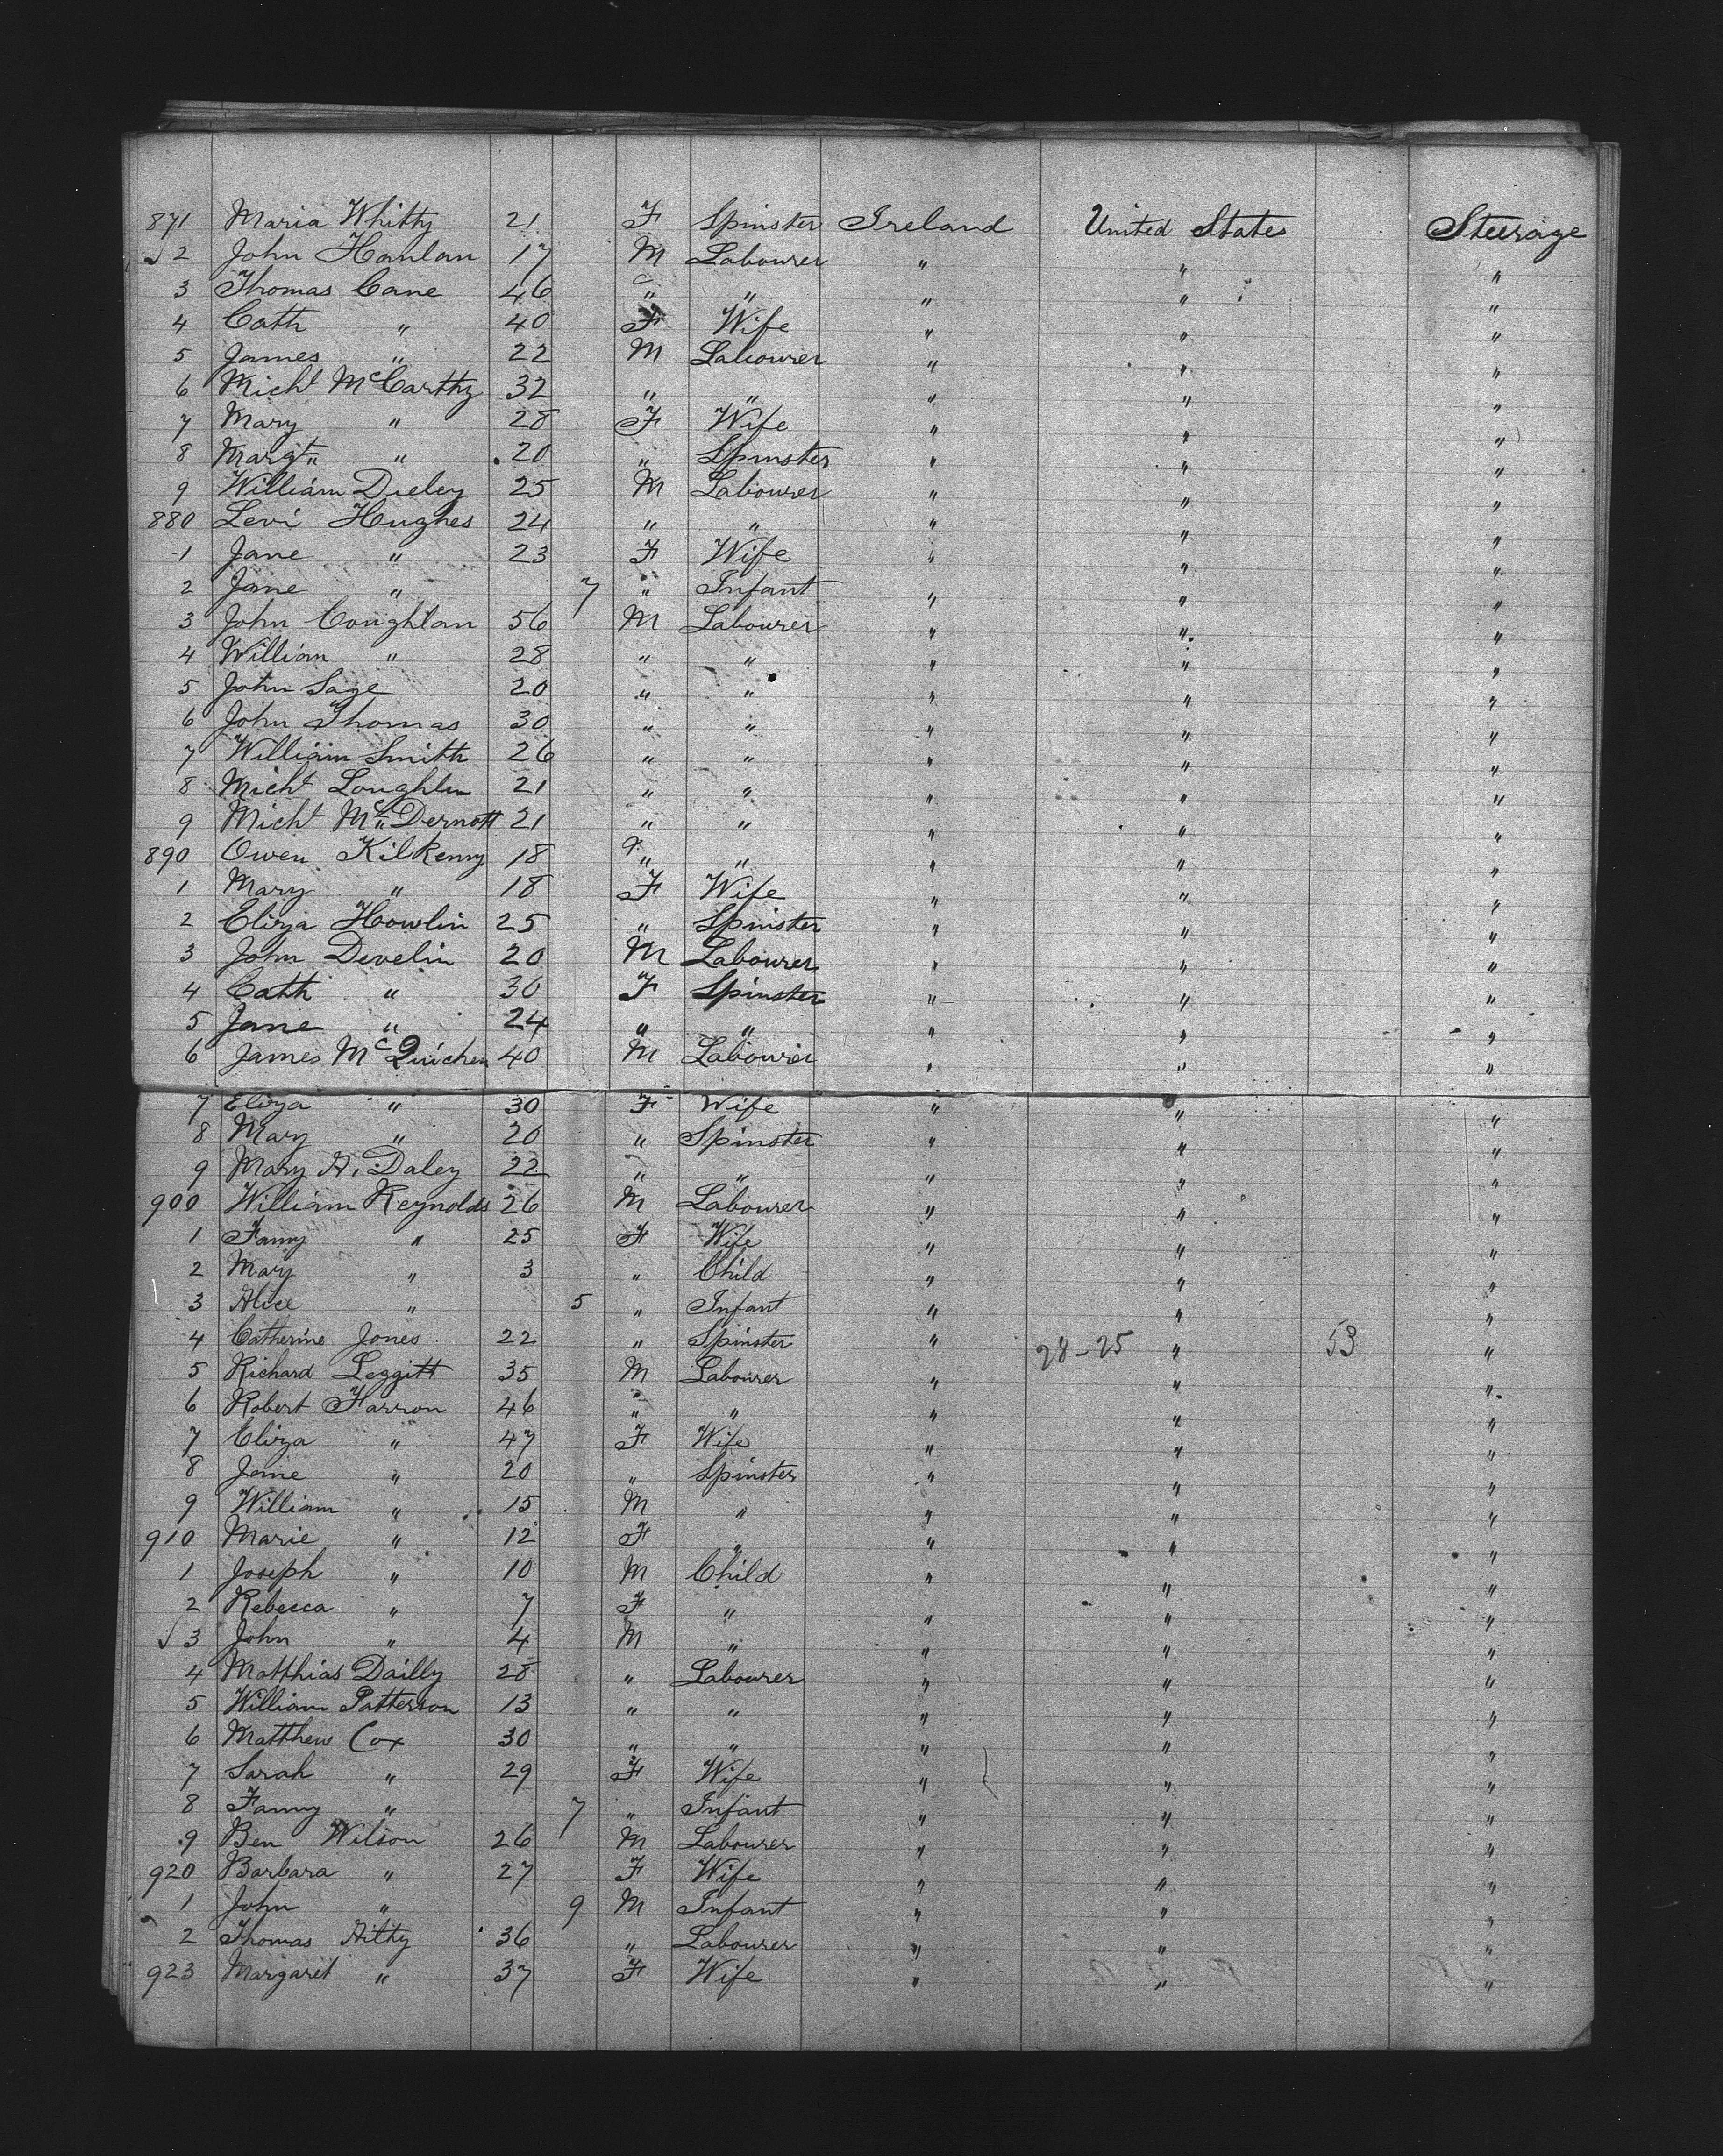 871 Maria Whitty 21 F Spinster Ireland United States Steerage
2 John Hanlan 17 M Labourer " " "
3 Thomas Cane 46 " " " " "
4 Cath " 40 F Wife " " "
5 James " 22 M Labourer " " "
6 Michl McCarthy 32 " " " " "
7 Mary " 28 F Wife " " "
8 Margt " 20 " Spinster " " "
9 William Dieley 25 M Labourer " " "
880 Levi Hughes 24 " " " " "
1 Jane " 23 F Wife " " "
2 Jane " 7 " Infant " " "
3 John Coughlan 56 M Labourer " " "
4 William " 28 " " " " "
5 John Sage 20 " " " " "
6 John Thomas 30 " " " " "
7 William Smith 26 " " " " "
8 Michl Loughlin 21 " " " " "
9 Michl McDernott 21 " " " " "
890 Owen Kilkenny 18 " " " " "
1 Mary " 18 F Wife " " "
2 Eliza Howlin 25 " Spinster " " "
3 John Develin 20 M Labourer " " "
4 Cath " 30 F Spinster " " "
5 Jane " 24 " " " " "
6 James McQuichen 40 M Labourer " " "
7 Eliza " 30 F Wife " " "
8 Mary " 20 " Spinster " " "
9 Mary A. Daley 22 " " " " "
900 William Reynolds 26 M Labourer " " "
1 Fanny " 25 F Wife " " "
2 Mary " 3 " Child " " "
3 Alice " 5 " Infant " " "
4 Catherine Jones 22 " Spinster " 28-25 " 53 "
5 Richard Leggitt 35 M Labourer " " "
6 Robert Farron 46 " " " " "
7 Eliza " 47 F Wife " " "
8 Jane " 20 " Spinster " " "
9 William " 15 M " " " "
910 Marie " 12 F " " " "
1 Joseph " 10 M Child " " "
2 Rebecca " 7 F " " " "
3 John " 4 M " " " "
4 Matthias Dailly 28 " Labourer " " "
5 William Patterson 13 " " " " "
6 Matthew Cox 30 " " " " "
7 Sarah " 29 F Wife " " "
8 Fanny " 7 " Infant " " "
9 Ben Wilson 26 M Labourer " " "
920 Barbara " 27 F Wife " " "
1 John " 9 M Infant " " "
2 Thomas Aithy 36 " Labourer " " "
923 Margaret " 37 F Wife " " "